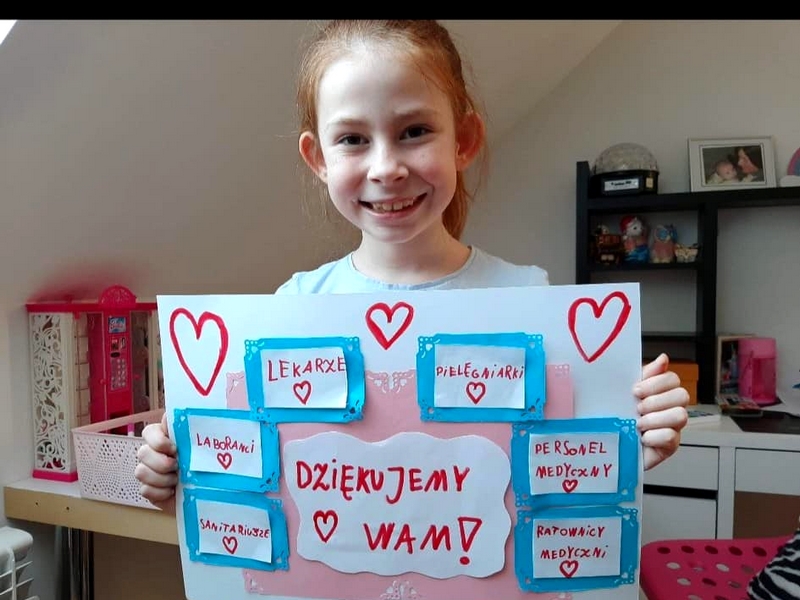 LEKARZE
PIELĘGNIARKI
LABORANCI
PERSONEL
MEDYCZNY
DZIĘKUJEMY
WAM!
SANITARIUSZE
RATOWNICY
MEDYCZNI